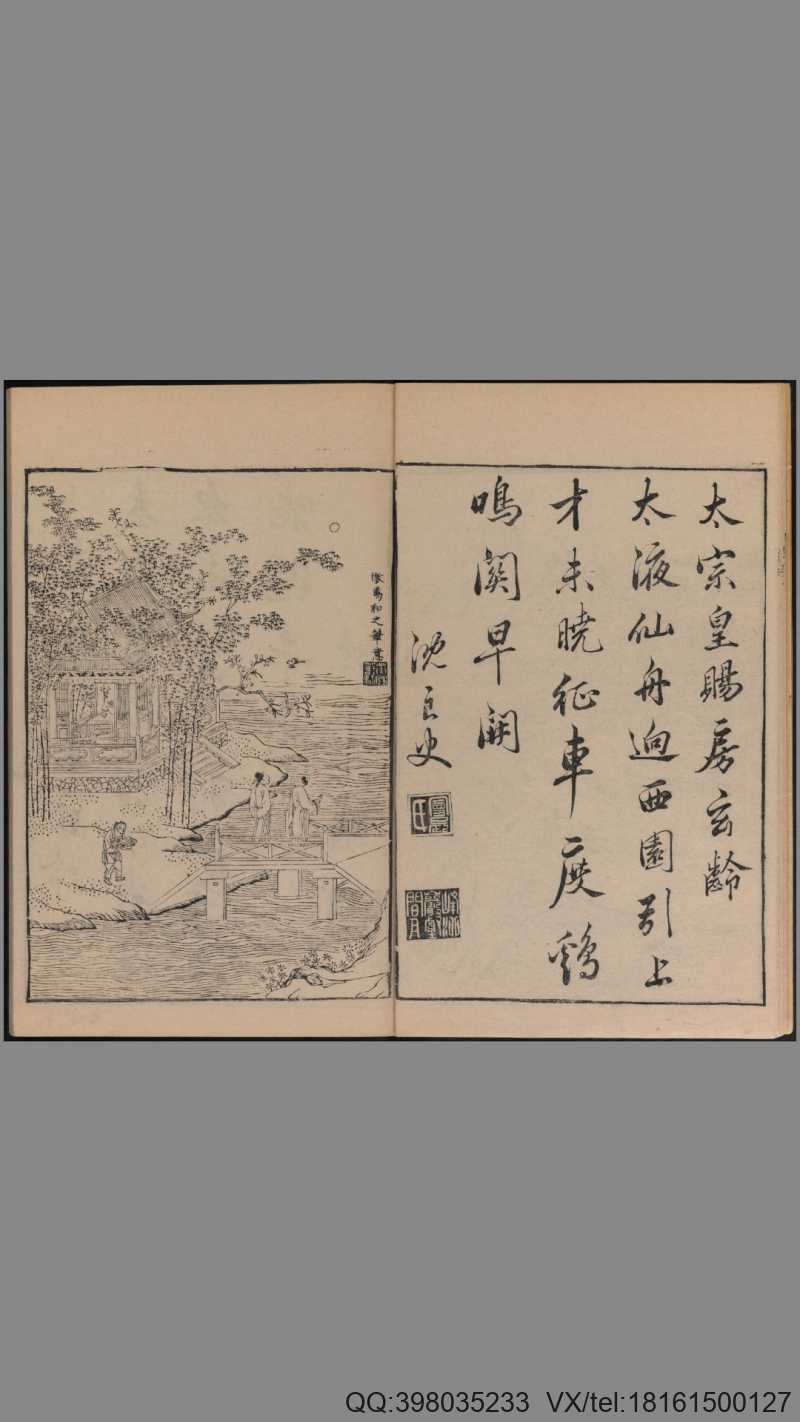 太宗皇賜房玄齡
太液仙舟迥西園引上
才未曉征車度鷄
鳴關早開
沈良史
倣馬和之筆意
QQ:398035233 VX/tel:18161500127